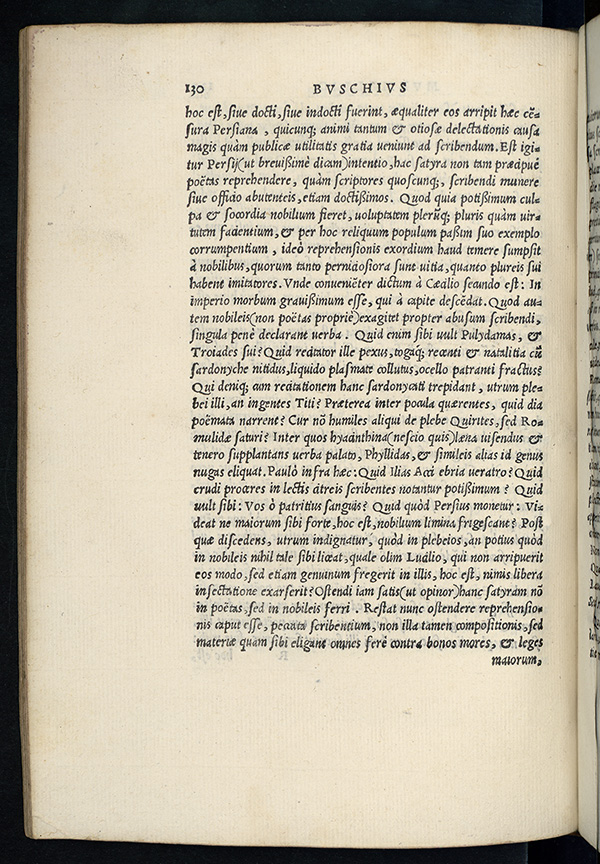 130 BVSCHIVS
hoc est, siue docti, siue indocti fuerint, æqualiter eos arripit hæc cẽ-
sura Persiana , quicunq; animi tantum & otiosæ delectationis causa
magis quàm publicæ utilitatis gratia ueniunt ad scribendum. Est igi-
tur Persij(ut breuißimè dicam)intentio, hac satyra non tam præcipuè
poëtas reprehendere, quàm scriptores quoscunq;, scribendi munere
siue officio abutenteis, etiam doctißimos. Quod quia potißimum cul-
pa & socordia nobilium fieret, uoluptatem plerũq; pluris quàm uir-
tutem facientium, & per hoc reliquum populum paßim suo exemplo
corrumpentium , ideò reprehensionis exordium haud temere sumpsit
à nobilibus, quorum tanto perniciosiora sunt uitia, quanto plureis sui
habent imitatores. Vnde conueniẽter dictum à Cæcilio secundo est: In
imperio morbum grauißimum esse, qui à capite descẽdat. Quod au-
tem nobileis(non poëtas propriè)exagitet propter abusum scribendi,
singula penè declarant uerba . Quid enim sibi uult Pulydamas, &
Troiades sui? Quid recitator ille pexus, togaq; recenti & natalitia cũ
sardonyche nitidus, liquido plasmate collutus, ocello patranti fractus?
Qui deniq; cum recitationem hanc sardonycati trepidant , utrum ple-
bei illi, an ingentes Titi? Præterea inter pocula quærentes, quid dia
poëmata narrent? Cur nõ humiles aliqui de plebe Quirites, sed Ro-
mulidæ saturi? Inter quos hyacinthina(nescio quis)læna uisendus &
tenero supplantans uerba palato, Phyllidas, & simileis alias id genus
nugas eliquat. Paulò infra hæc: Quid Ilias Acci ebria ueratro? Quid
crudi proceres in lectis citreis scribentes notantur potißimum ? Quid
uult sibi: Vos ô patritius sanguis? Quid quòd Persius monetur : Vi-
deat ne maiorum sibi forte, hoc est, nobilium limina frigescant? Post
quæ discedens, utrum indignatur, quòd in plebeios, an potius quòd
in nobileis nihil tale sibi liceat, quale olim Lucilio, qui non arripuerit
eos modo, sed etiam genuinum fregerit in illis, hoc est, nimis libera
insectatione exarserit? Ostendi iam satis(ut opinor)hanc satyram nõ
in poëtas, sed in nobileis ferri . Restat nunc ostendere reprehensio-
nis caput esse, peccata scribentium, non illa tamen compositionis, sed
materiæ quàm sibi eligant omnes ferè contra bonos mores, & leges
maiorum,